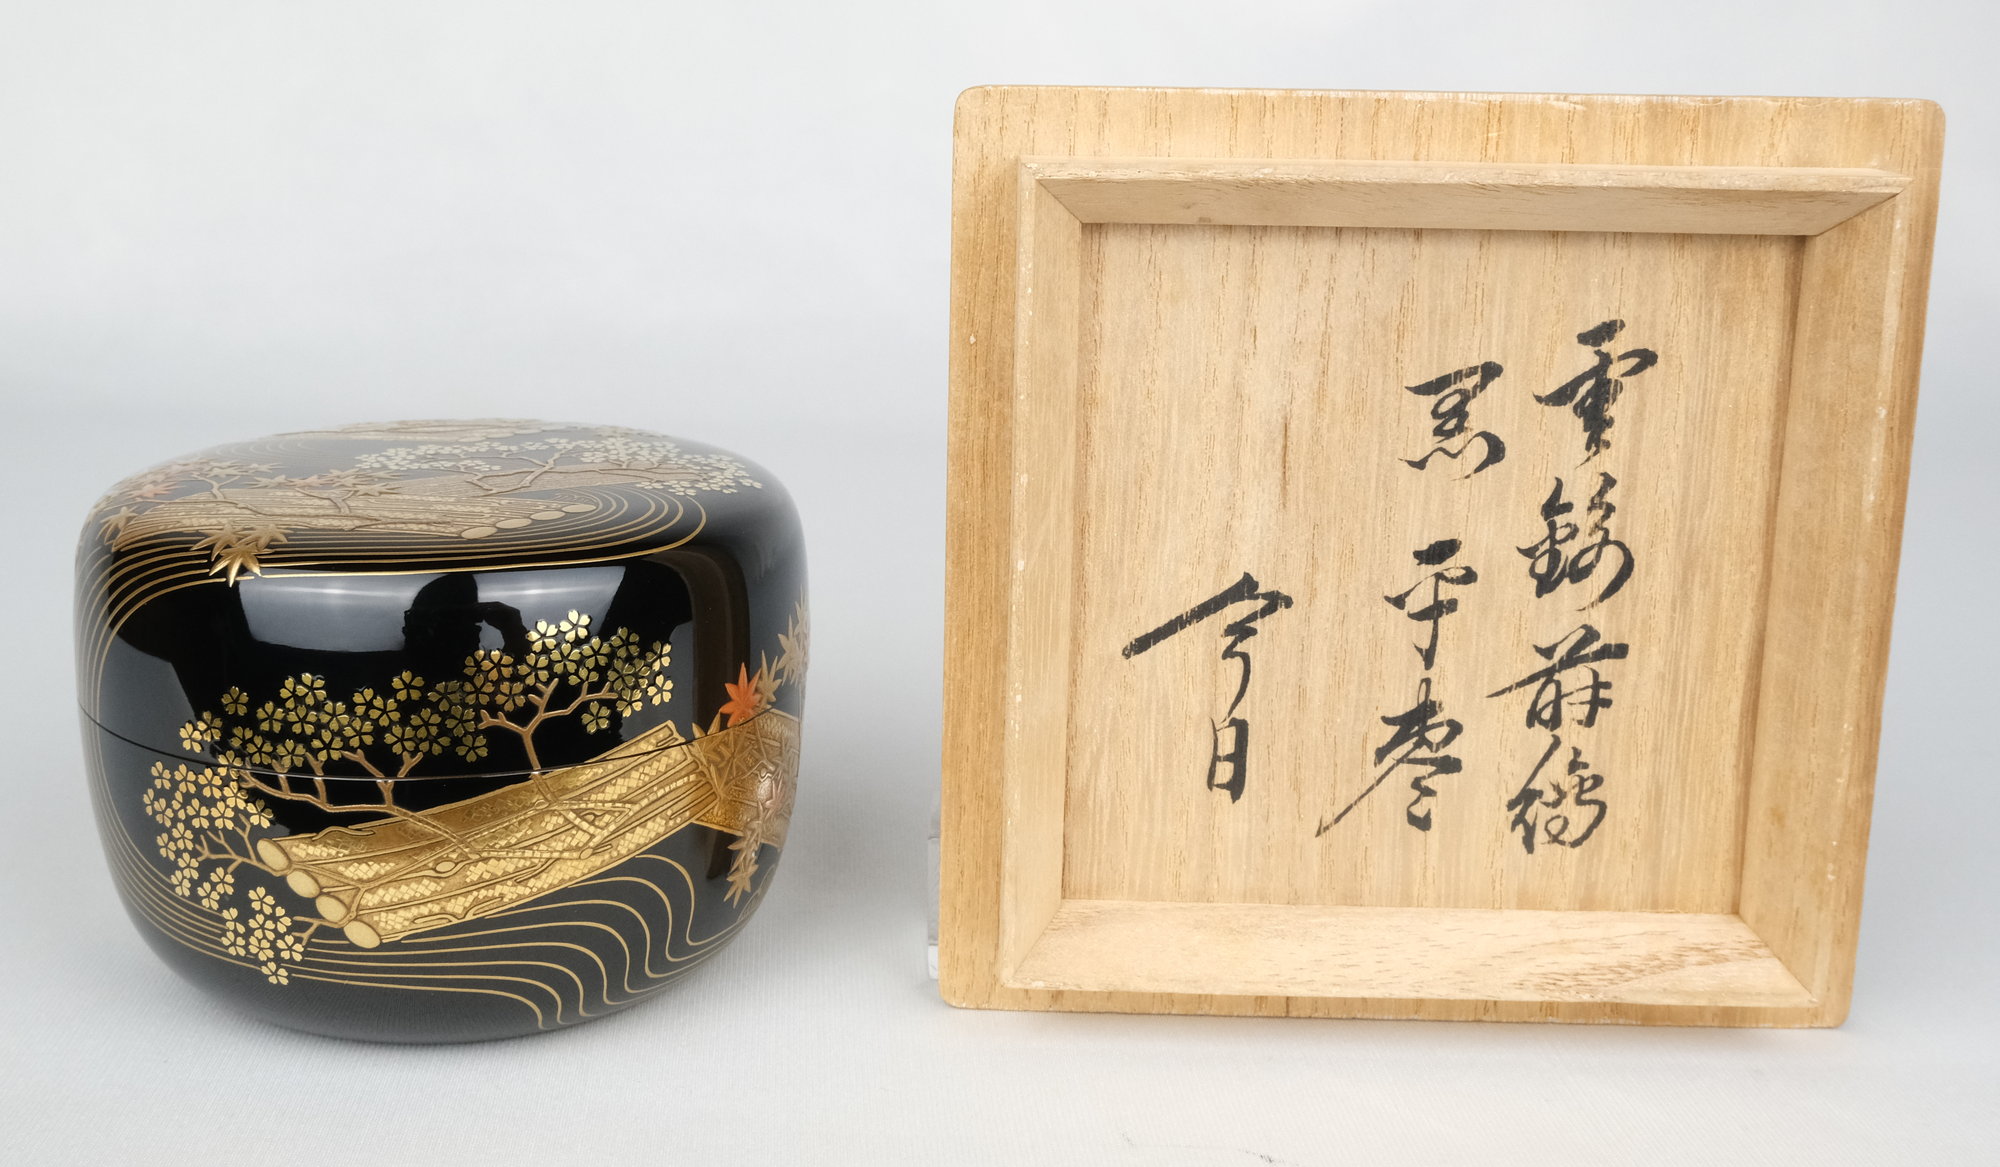 雲錦蒔繪
黒 平棗
今日